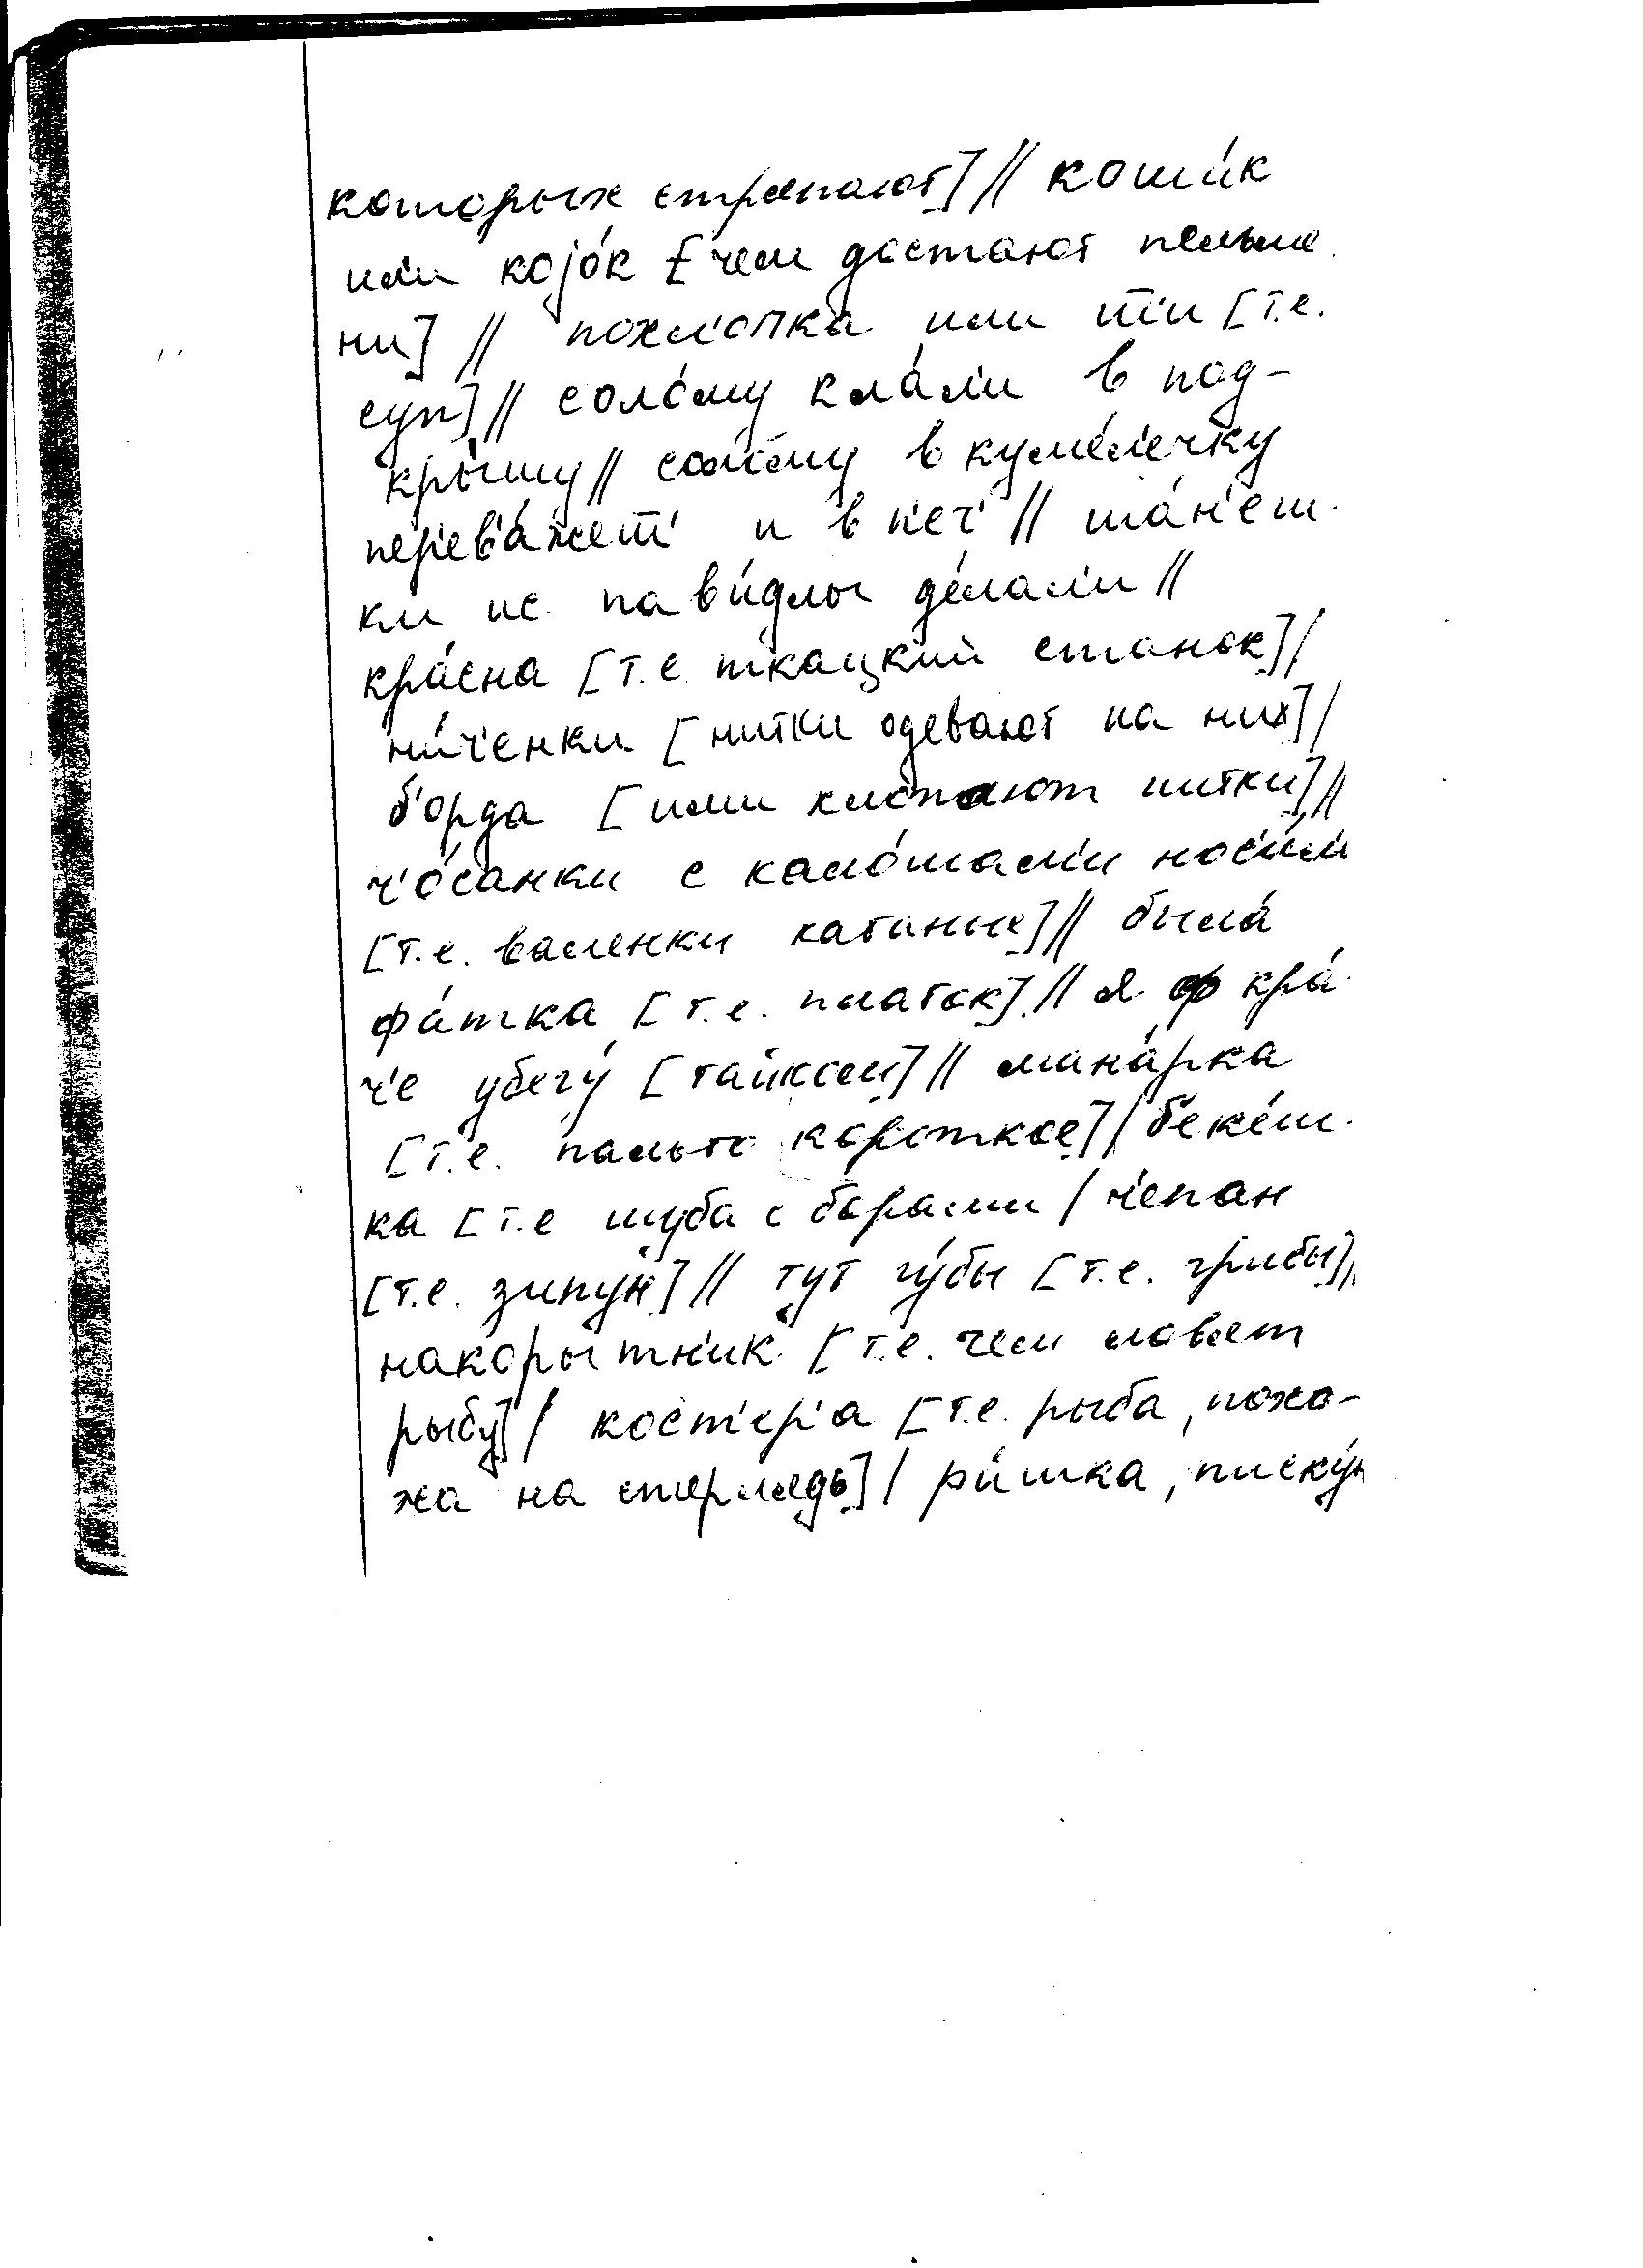 которых стряпают] // коши́к
или коjо́к [чем достают пельме
ни] // похл'о́пка или шт'и [т.е.
суп] // соло́му кла́л'и в под-
кры́шу // соло́му в куме́л'ечку
п'ер'ев'а́жет' и в п'еч' // ша́н'еш.
ки ис пав'и́длы де́лал'и //
кра́сна [т.е. ткацкий станок] /
ни́ч'енки [нитки одевают на них] /
б'орда [ими хлопают нитки] //
ч'о́санки с кало́шам'и нос'и́л'и
[т.е. валенки катаные] // была́
фа́тка [т.е. платок] // я ф кра́
ч'е убегу́ [тайком] // мина́рка
[т.е. пальто короткое] / б'еке́ш.
ка [т.е шуба с борами / ч'епан
[т.е. зипун] // тут гу́бы [т.е. грибы] //
накорытн'ик [т.е. чем ловят
рыбу] / кост'ер'а [т.е. рыба, похо-
жа на стерлядь] / р'и́шка, писку́н